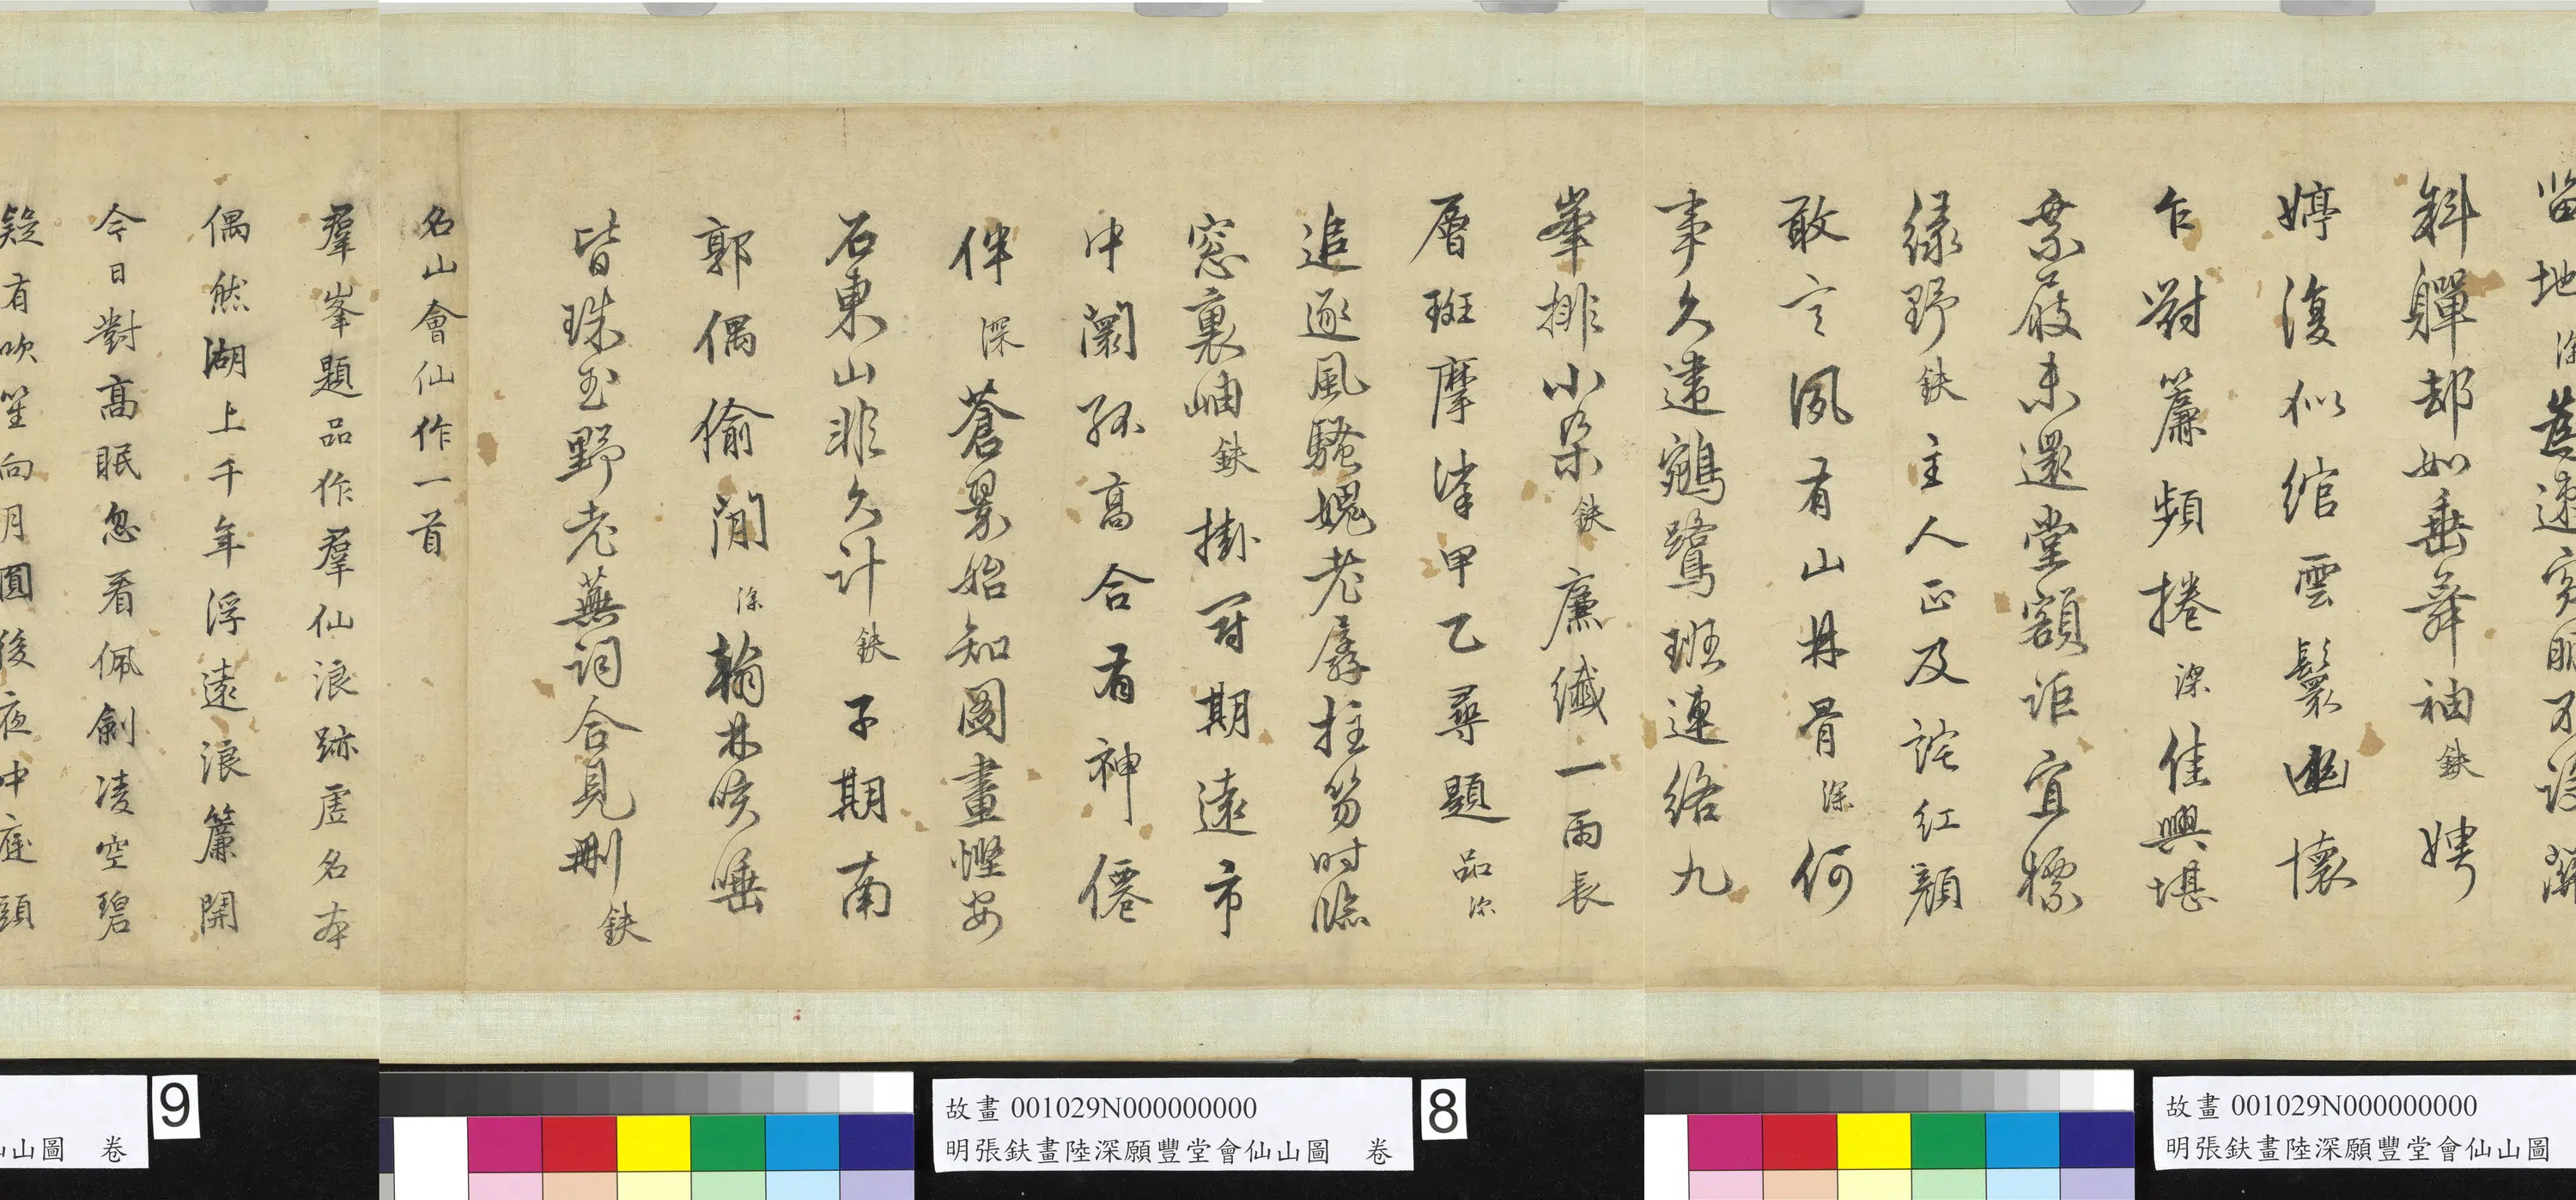 留地深舊遠
斜嚲却如垂舞袖鈇娉
婷復似綰雲鬟幽懷
乍對簾頻捲深佳興堪
乘屐未還堂額詎宜標
綠野鈇主人正及詫紅顏
敢言夙有山林骨深何
事久違鵷鷺班連絡九
峯排小朶鈇廉纖一雨長
層斑摩挲甲乙尋題品深
追逐風騷媿老孱拄笏時臨
窓裏岫鈇掛冠期遠市
中闤孤高合有神僊
伴深蒼翠始知圖畫慳安
石東山非久計鈇子期南
郭偶偷閒深翰林咳唾
皆珠玉野老蕪詞合見刪鈇
名山會仙作一首
羣峯題品作羣仙浪跡虛名本
偶然湖上千年浮遠浪簾開
今日對高眠忽看佩劍凌空碧
疑有吹笙向月圓後夜中庭頭
故畫 001029N000000000
明張鈇畫陸深願豐堂會仙山圖
故畫 001029N000000000
明張鈇畫陸深願豐堂會仙山圖 卷
8
仙山圖 卷
9